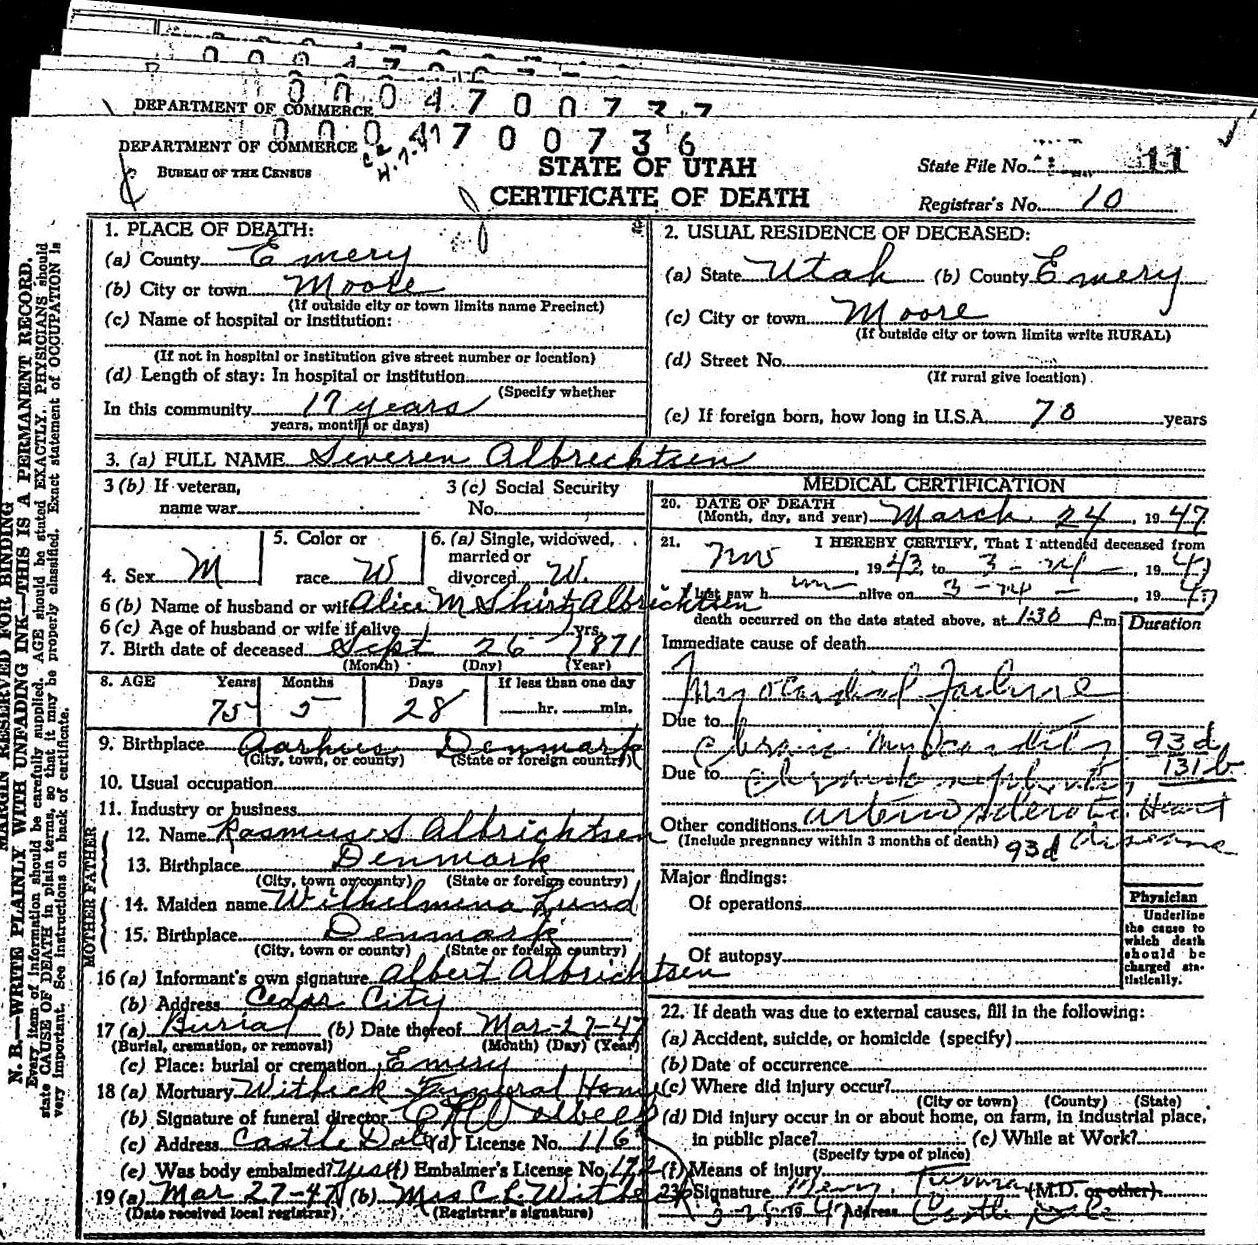 0004700737
DEPARTMENT OF COMMERCE
0004700736
DEPARTMENT OF COMMERCE
BUREAU OF THE CENSUS
STATE OF UTAH
CERTIFICATE OF DEATH
State File No. 11
Registrar's No. 10
MARGIN RESERVED FOR BINDING
N. B.—WRITE PLAINLY WITH UNFADING INK—THIS IS A PERMANENT RECORD.
Every item of information should be carefully supplied. AGE should be stated EXACTLY. PHYSICIANS should
state CAUSE OF DEATH in plain terms, so that it may be properly classified. Exact statement of OCCUPATION is
very important. See instructions on back of certificate.
1. PLACE OF DEATH:
(a) County Emery
(b) City or town Moore
(If outside city or town limits name Precinct)
(c) Name of hospital or institution:
(If not in hospital or institution give street number or location)
(d) Length of stay: In hospital or institution
(Specify whether
In this community 17 years
years, months or days)
2. USUAL RESIDENCE OF DECEASED:
(a) State Utah (b) County Emery
(c) City or town Moore
(If outside city or town limits write RURAL)
(d) Street No.
(If rural give location)
(e) If foreign born, how long in U.S.A. 70 years
3. (a) FULL NAME Severen Albrechtsen
3 (b) If veteran,
name war
3 (c) Social Security
No.
4. Sex M
5. Color or
race W
6. (a) Single, widowed,
married or
divorced W.
6 (b) Name of husband or wife Alice M Shirtz Albrichtsen
6 (c) Age of husband or wife if alive yrs.
7. Birth date of deceased Sept 26 1871
(Month) (Day) (Year)
8. AGE Years Months Days If less than one day
75 5 28 hr. min.
9. Birthplace Aarhus Denmark
(City, town, or county) (State or foreign country)
10. Usual occupation
11. Industry or business
FATHER
12. Name Rasmus S Albrichtsen
13. Birthplace Denmark
(City, town or county) (State or foreign country)
MOTHER
14. Maiden name Wilhelmina Lund
15. Birthplace Denmark
(City, town or county) (State or foreign country)
16 (a) Informant's own signature Albert Albrichtsen
(b) Address Cedar City
17 (a) Burial (b) Date thereof Mar-27-47
(Burial, cremation, or removal) (Month) (Day) (Year)
(c) Place: burial or cremation Emery
18 (a) Mortuary Funeral Home
(b) Signature of funeral director
(c) Address Castle Dale (d) License No. 116
(e) Was body embalmed? Yes (f) Embalmer's License No. 172
19 (a) Mar 27-47 (b) Mrs C L
(Date received local registrar) (Registrar's signature)
MEDICAL CERTIFICATION
20. DATE OF DEATH
(Month, day, and year) March 24, 1947
21. I HEREBY CERTIFY, That I attended deceased from
Nov, 1943, to 3-24-, 1947
I last saw h im alive on 3-24-, 1947
death occurred on the date stated above, at 1:30 Pm
Duration
Immediate cause of death
Myocardial Failure
Due to
Chronic Myocarditis 93d
131b
Due to Chronic nephritis
Other conditions Arteriosclerotic Heart
(Include pregnancy within 3 months of death) 93d disease
Major findings:
Of operations
Of autopsy
Physician
Underline
the cause to
which death
should be
charged sta-
tistically.
22. If death was due to external causes, fill in the following:
(a) Accident, suicide, or homicide (specify)
(b) Date of occurrence
(c) Where did injury occur?
(City or town) (County) (State)
(d) Did injury occur in or about home, on farm, in industrial place,
in public place? (e) While at Work?
(Specify type of place)
(f) Means of injury
23. Signature (M.D. or other)
1947 Address Castle Dale